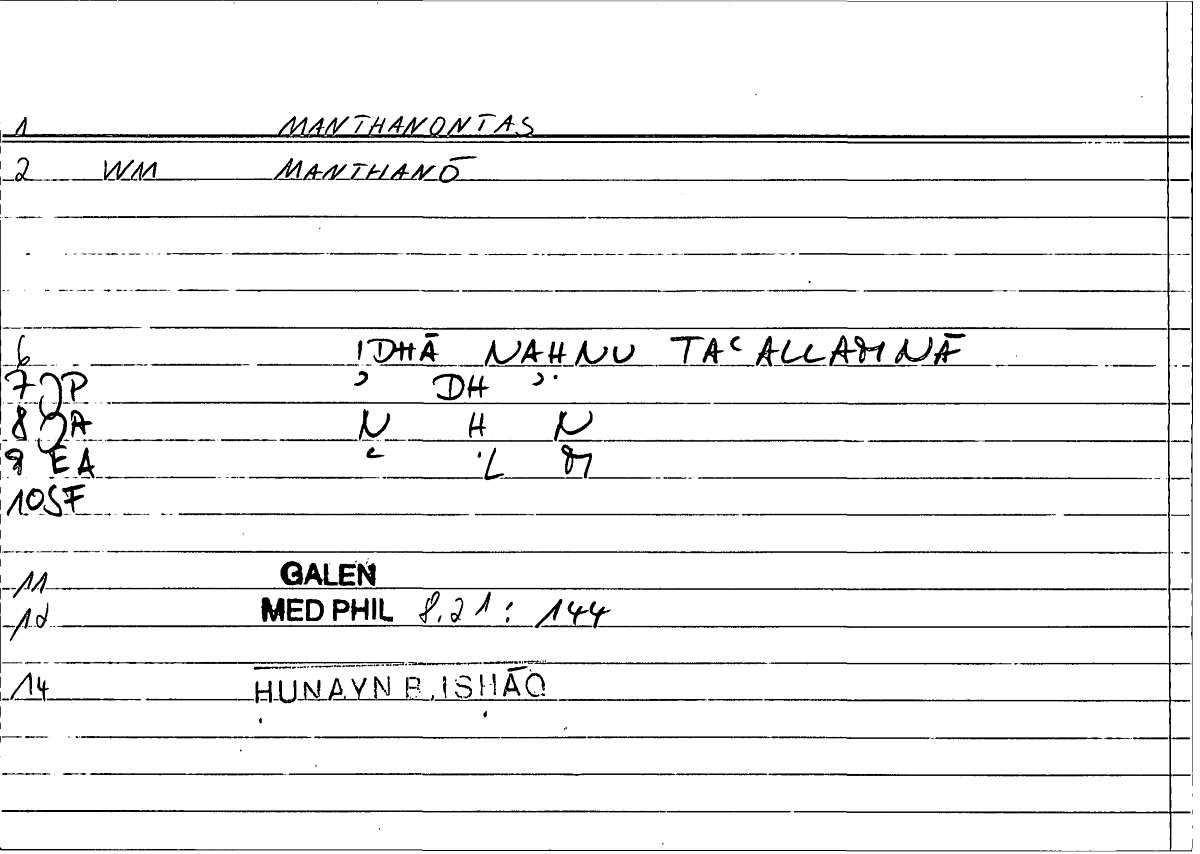 1 MANTHANONTAS
2 WM MANTHANŌ
6 ʾIDHĀ NAḤNU TAʿALLAMNĀ
7 JP ʾ DH ʾ
8 JA N Ḥ N
9 EA ʿ L M
10 SF
11 GALEN
12 MED PHIL 8,21: 144
14 ḤUNAYN B. ISḤĀQ